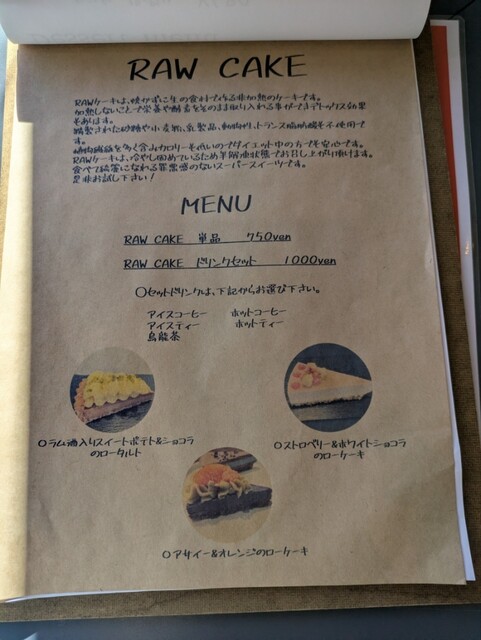 RAW CAKE
RAWケーキは、焼かずに生の食材で作る非加熱のケーキです。
加熱しないことで栄養や酵素をそのまま取り入れる事ができデトックス効果
もあります。
精製された砂糖や小麦粉、乳製品、動物性、トランス脂肪酸を不使用で
す。
植物繊維を多く含みカロリーも低いのでダイエット中の方でも安心です。
RAWケーキは、冷やし固めているため半解凍状態でお召し上がり頂けます。
食べて綺麗になれる罪悪感のないスーパースイーツです。
是非お試し下さい！
MENU
RAW CAKE 単品 750yen
RAW CAKE ドリンクセット 1000yen
○セットドリンクは、下記からお選び下さい。
アイスコーヒー ホットコーヒー
アイスティー ホットティー
烏龍茶
○ラム酒入りスイートポテト&ショコラ
のロータルト
○ストロベリー&ホワイトショコラ
のローケーキ
○アサイー&オレンジのローケーキ